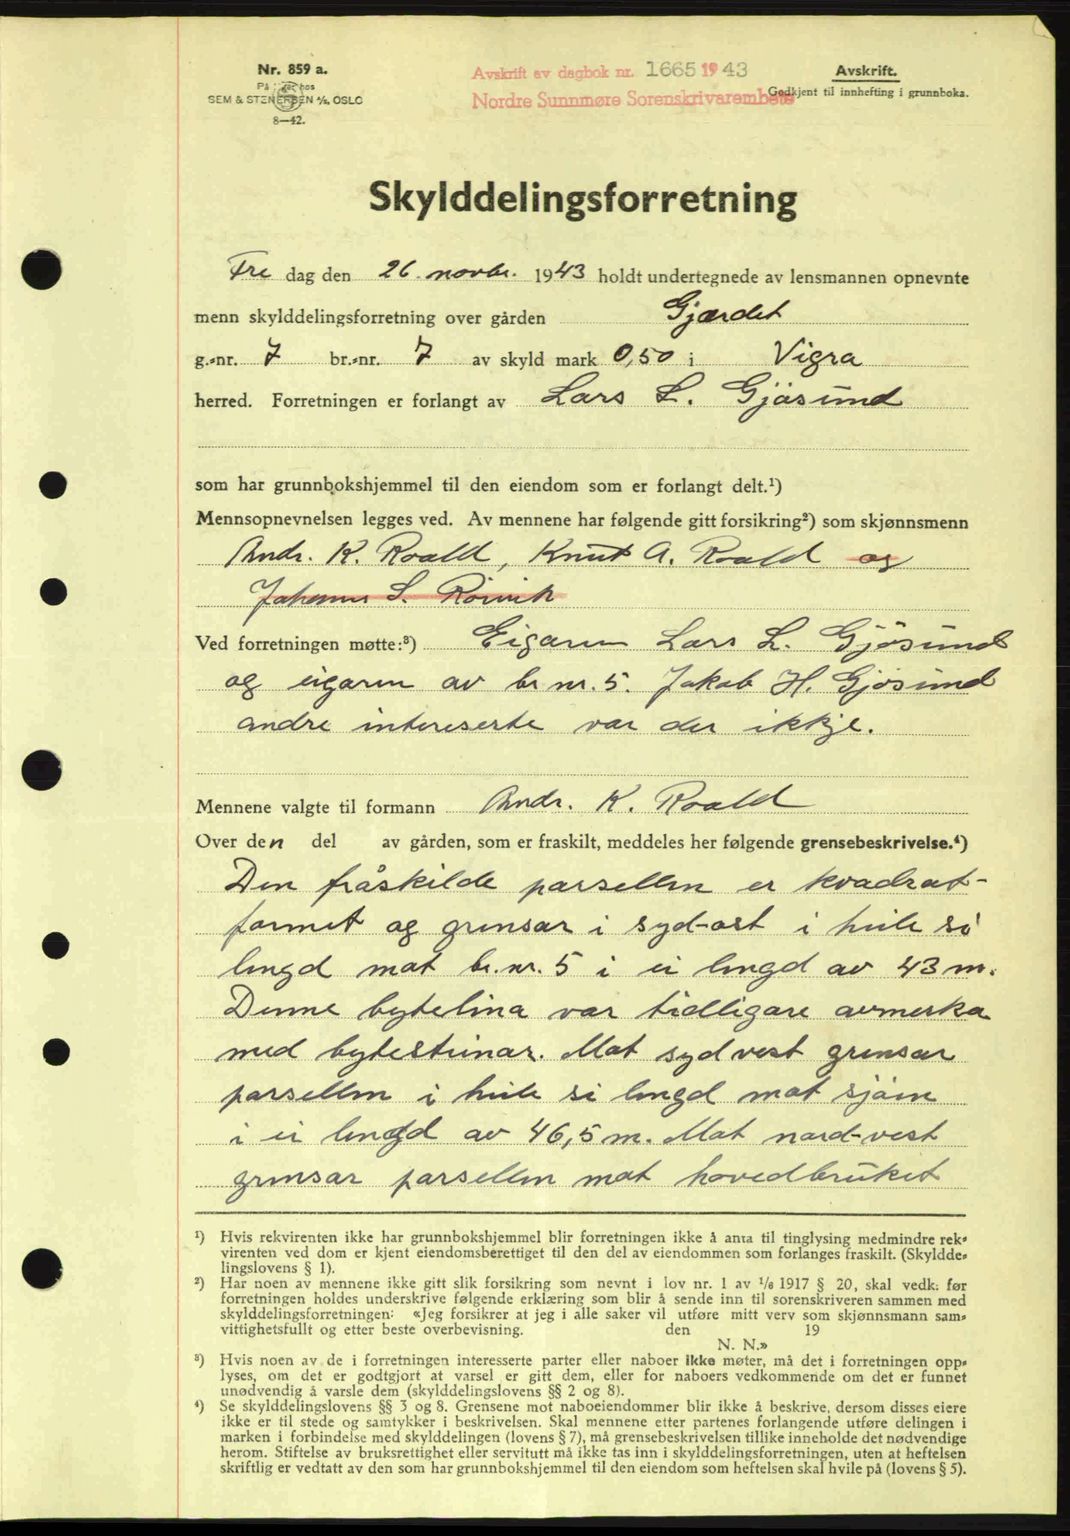 Nr. 859 a.
SEM & STENERSEN A/S, OSLO
8—42.
Avskrift av dagbok nr. 1665 1943
Nordre Sunnmøre Sorenskrivarembete
Avskrift.
Godkjent til innhefting i grunnboka.
Skylddelingsforretning
Fre dag den 26. novbr. 1943 holdt undertegnede av lensmannen opnevnte
menn skylddelingsforretning over gården Gjærdet
g.-nr. 7 br.-nr. 7 av skyld mark 0,50 i Vigra
herred. Forretningen er forlangt av Lars L. Gjøsund
som har grunnbokshjemmel til den eiendom som er forlangt delt.¹)
Mennsopnevnelsen legges ved. Av mennene har følgende gitt forsikring²) som skjønnsmenn
Andr. K. Roald, Knut A. Roald og
Johannes S. Rörvik
Ved forretningen møtte:³) Eigaren Lars L. Gjösund
og eigaren av br. nr. 5. Jakob H. Gjösund
andre intereserte var der ikkje.
Mennene valgte til formann Andr. K. Roald
Over den del av gården, som er fraskilt, meddeles her følgende grensebeskrivelse.⁴)
Den fråskilde parsellen er kvadrat-
formet og grensar i syd-ost i heile si
lengd mot br. nr. 5 i ei lengd av 43 m.
Denne bytelina var tidligare avmerka
med bytesteinar. Mot syd vest grensar
parsellen i heile si lengd mot sjöen
i ei lengd av 46,5 m. Mot nord-vest
grensar parsellen mot hovedbruket
¹) Hvis rekvirenten ikke har grunnbokshjemmel blir forretningen ikke å anta til tinglysing medmindre rek-
virenten ved dom er kjent eiendomsberettiget til den del av eiendommen som forlanges fraskilt. (Skyldde-
lingslovens § 1).
²) Har noen av mennene ikke gitt slik forsikring som nevnt i lov nr. 1 av 1/6 1917 § 20, skal vedk. før
forretningen holdes underskrive følgende erklæring som blir å sende inn til sorenskriveren sammen med
skylddelingsforretningen: «Jeg forsikrer at jeg i alle saker vil utføre mitt verv som skjønnsmann sam-
vittighetsfullt og etter beste overbevisning. den 19
N. N.»
³) Hvis noen av de i forretningen interesserte parter eller naboer ikke møter, må det i forretningen opp-
lyses, om det er godtgjort at varsel er gitt dem, eller for naboers vedkommende om det er funnet
unødvendig å varsle dem (skylddelingslovens §§ 2 og 8).
⁴) Se skylddelingslovens §§ 3 og 8. Grensene mot naboeiendommer blir ikke å beskrive, dersom disses eiere
ikke er til stede og samtykker i beskrivelsen. Skal mennene etter partenes forlangende utføre delingen i
marken i forbindelse med skylddelingen (lovens § 7), må grensebeskrivelsen tillike inneholde det nødvendige
herom. Stiftelse av bruksrettighet eller servitutt må ikke tas inn i skylddelingsforretningen, uten at heftelsen
skriftlig er vedtatt av den som har grunnbokshjemmel til den eiendom som heftelsen skal hvile på (lovens § 5).